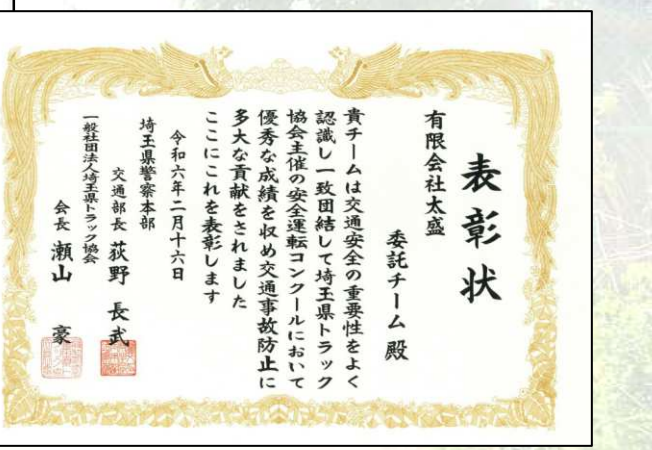 表彰状
有限会社太盛
委託チーム 殿
貴チームは交通安全の重要性をよく
認識し一致団結して埼玉県トラック
協会主催の安全運転コンクールにおいて
優秀な成績を収め交通事故防止に
多大な貢献をされました
ここにこれを表彰します
令和六年二月十六日
埼玉県警察本部
交通部長 荻野 長武
一般社団法人埼玉県トラック協会
会長 瀬山 豪